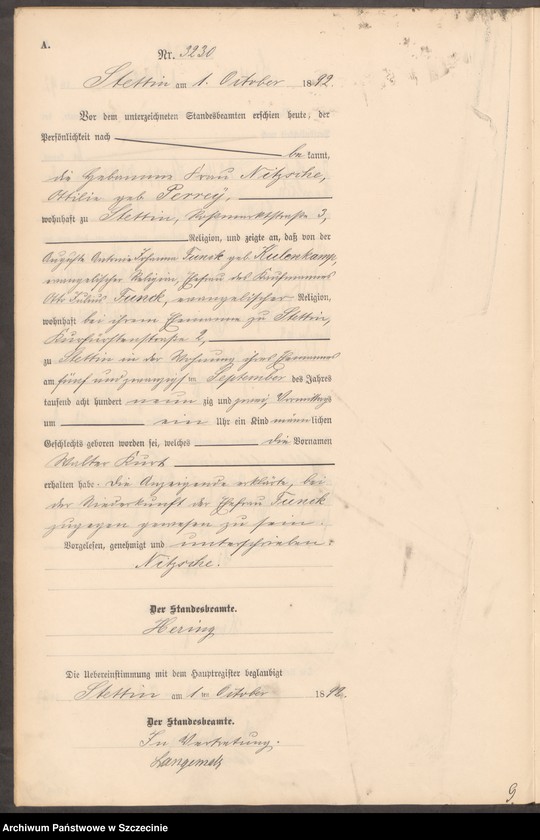 A.
Nr. 3230
Stettin am 1. October 1892.
Vor dem unterzeichneten Standesbeamten erschien heute, der
Persönlichkeit nach
be kannt,
die Hebamme Frau Nitzsche,
Ottilie geb Perrey,
wohnhaft zu Stettin, Roßmarktstraße 3,
Religion, und zeigte an, daß von der
Auguste Antonie Johanna Funck geb. Kulenkamp,
evangelischer Religion, Ehefrau des Kaufmannes
Otto Julius Funck, evangelischer Religion,
wohnhaft bei ihrem Ehemanne zu Stettin,
Kurfürstenstraße 2,
zu Stettin in der Wohnung ihres Ehemannes
am fünf und zwanzigs ten September des Jahres
tausend acht hundert neun zig und zwei, Vormittags
um ein Uhr ein Kind männlichen
Geschlechts geboren worden sei, welches die Vornamen
Walter Kurt
erhalten habe. Die Anzeigende erklärte, bei
der Niederkunft der Ehefrau Funck
zugegen gewesen zu sein.
Vorgelesen, genehmigt und unterschrieben:
Nitzsche.
Der Standesbeamte.
Hering
Die Uebereinstimmung mit dem Hauptregister beglaubigt
Stettin am 1 ten October 1892.
Der Standesbeamte.
In Vertretung.
9
Archiwum Państwowe w Szczecinie